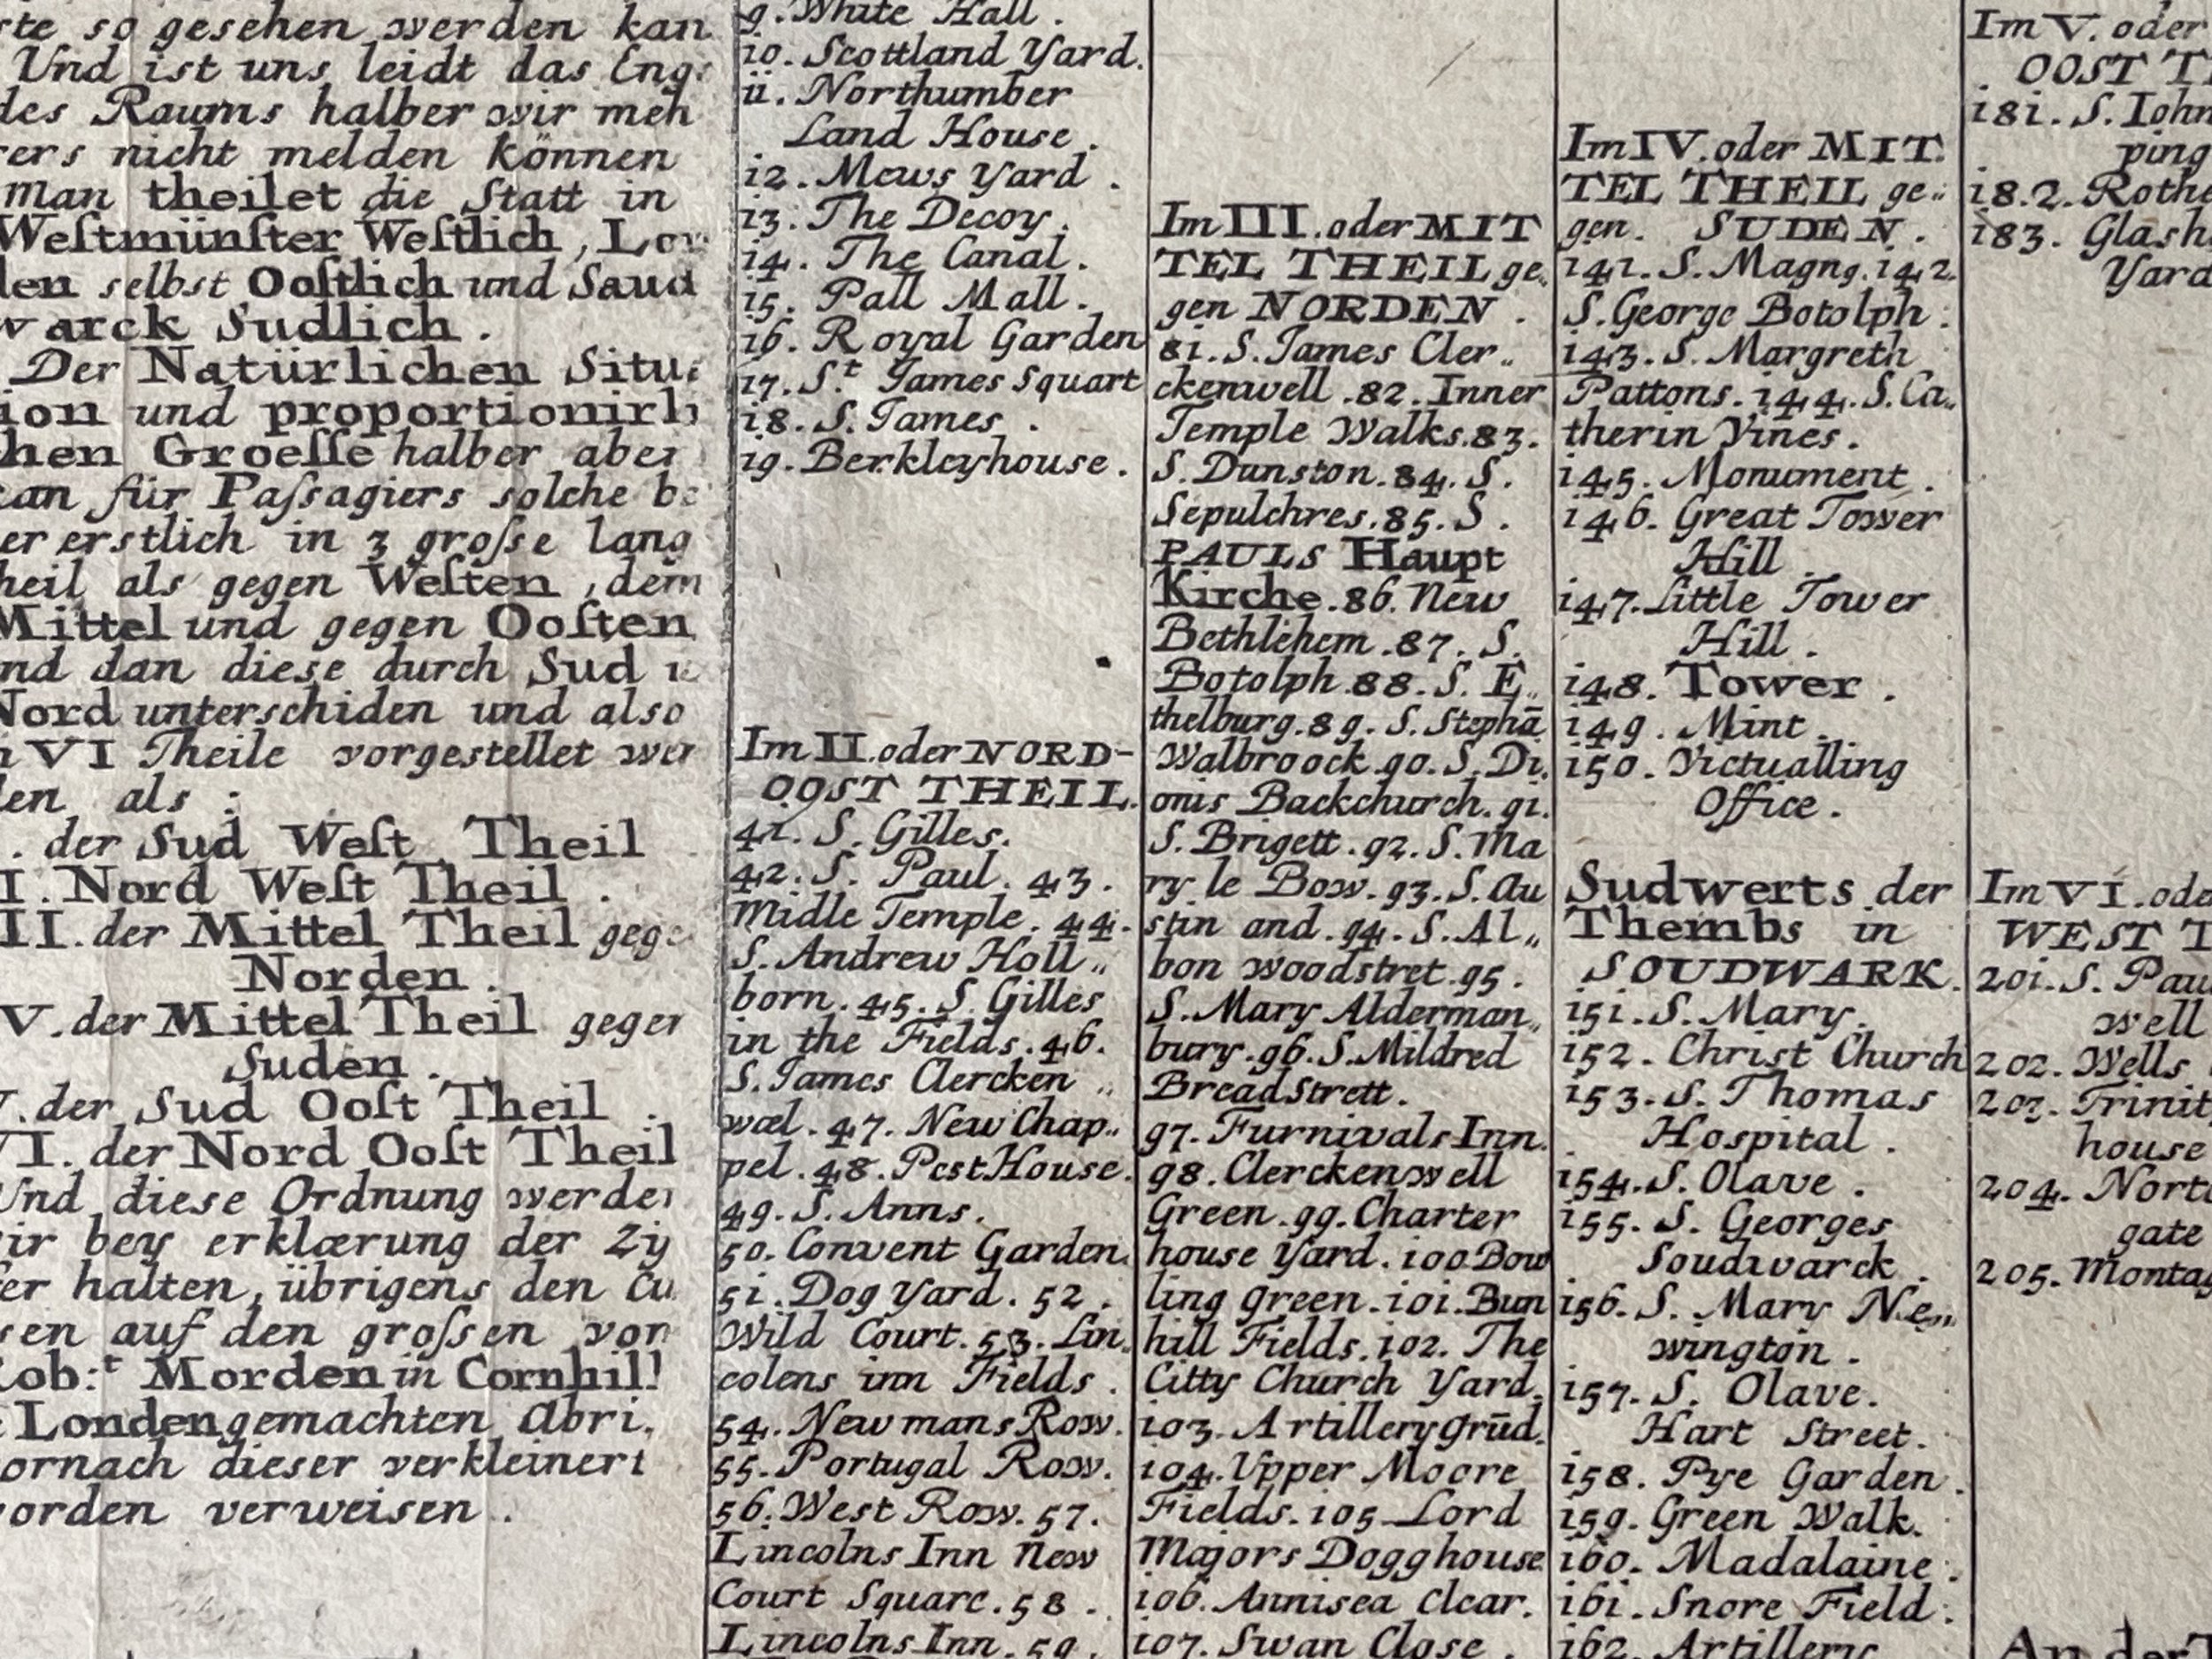 so gesehen werden kan
Und ist uns leidt das Eng
des Raums halber wir meh
nicht melden können
man theilet die Statt in
Weſtmünſter Weſtlich, Lon
den selbst Ooſtlich und Saud
warck Sudlich.
Der Natürlichen Situa
ion und proportionirli
chen Groeſſe halber aber
kan für Paſsagiers solche
er erstlich in 3 groſse lang
heil als gegen Weſten, dem
Mittel und gegen Ooſten
nd dan diese durch Sud u
Nord unterschiden und also
n VI Theile vorgestellet wer
den als:
. der Sud Weſt Theil
I. Nord Weſt Theil.
II. der Mittel Theil gege
Norden.
V. der Mittel Theil gegen
Suden.
V. der Sud Ooſt Theil.
VI. der Nord Ooſt Theil
Und diese Ordnung werden
ir bey erklærung der Zy
er halten, übrigens den Cu
sen auf den groſsen von
Rob:t Morden in Cornhill
Londen gemachten Abri.
ornach dieser verkleinert
vorden verweisen.
9. White Hall.
i0. Scottland Yard.
ii. Northumber
Land House.
i2. Mews Yard.
i3. The Decoy.
i4. The Canal.
i5. Pall Mall.
i6. Royal Garden
i7. St James Squart
i8. S. James.
i9. Berkleyhouse.
Im II. oder NORD-
OOST THEIL.
4i. S. Gilles.
42. S. Paul. 43.
Midle Temple. 44.
S. Andrew Holl„
born. 45. S. Gilles
in the Fields. 46.
S. James Clercken„
wæl. 47. New Chap„
pel. 48. Pest House.
49. S. Anns.
50. Convent Garden.
5i. Dog Yard. 52.
Wild Court. 53. Lin„
colens inn Fields.
54. New mans Row.
55. Portugal Row.
56. West Row. 57.
Lincolns Inn New
Court Square. 58.
Lincolns Inn. 59.
Im III. oder MIT
TEL THEIL ge„
gen NORDEN.
8i. S. James Cler„
ckenwell. 82. Inner
Temple Walks. 83.
S. Dunston. 84. S.
Sepulchres. 85. S.
PAULS Haupt
Kirche. 86. New
Bethlehem. 87. S.
Botolph. 88. S. E„
thelburg. 89. S. Stephā
Walbroock. 90. S. Di„
onis Backchurch. 9i.
S. Brigett. 92. S. Ma
ry le Bow. 93. S. Au
stin and. 94. S. Al„
bon woodstret. 95.
S. Mary Alderman„
bury. 96. S. Mildred
Bread Strett.
97. Furnivals Inn.
98. Clerckenwell
Green. 99. Charter
house Yard. i00. Bow
ling Green. i0i. Bun
hill Fields. i02. The
Citty Church Yard.
i03. Artillery Grūd.
i04. Upper Moore
Fields. i05. Lord
Majors Dogghouse
i06. Annisea Clear.
i07. Swan Close.
Im IV. oder MIT
TEL THEIL ge„
gen. SUDEN.
i4i. S. Magng. i42.
S. George Botolph.
i43. S. Margreth
Pattons. i44. S. Ca„
therin Vines.
i45. Monument.
i46. Great Tower
Hill.
i47. Little Tower
Hill.
i48. Tower.
i49. Mint.
i50. Victualling
Office.
Sudwerts der
Thembs in
SOUDWARK.
i5i. S. Mary.
i52. Christ Church
i53. S. Thomas
Hospital.
i54. S. Olave.
i55. S. Georges
Soudwarck.
i56. S. Mary Ne„
wington.
i57. S. Olave.
Hart Street.
i58. Pye Garden.
i59. Green Walk.
i60. Madalaine.
i6i. Snore Field.
i62. Artillery
Im V. oder
OOST T
i8i. S. Iohn
ping
i8.2. Rothe
i83. Glash
Yard
Im VI. ode
WEST T
20i. S. Pau
well
202. Wells
203. Trinit
house
204. Nort
gate
205. Montag
An der T